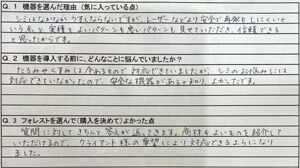 Q. 1　機器を選んだ理由（気に入っている点）
シミはなかなかうすくならないですが、レーザーなどより安全で再発もしにくいと
いう点と実績もよいパターンも悪いパターンも見せていただき、信頼できる
と思ったからです。
Q. 2　機器を導入する前に、どんなことに悩んでいましたか？
たるみやくすみは今あるもので対応できていましたが、シミのお悩みには
対応できていなかったので、安全な機器があると知り、よかったです。
Q. 3　フォレストを選んで（購入を決めて）よかった点
質問に対してきちんと答えが返ってきます。商材もよいものを紹介して
いただけるので、クライアント様の要望により対応できるようになり
ました。